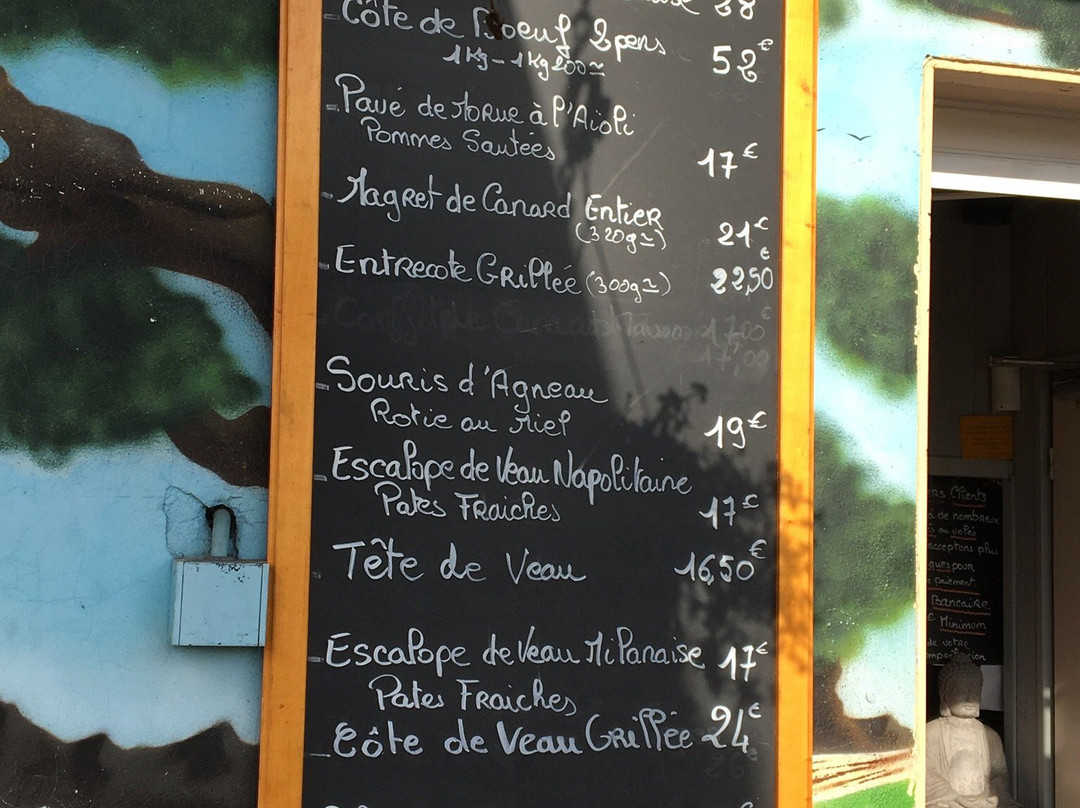 28
- Côte de Boeuf 2 pers 52€
1 Kg - 1 Kg 200 ≃
- Pavé de Morue à l'Aïoli
Pommes Sautées 17€
- Magret de Canard Entier
(320g ≃) 21€
- Entrecote Grillée (300g ≃) 22,50€
17,00
- Souris d'Agneau
Rotie au Miel 19€
- Escalope de Veau Napolitaine
Pates Fraiches 17€
- Tête de Veau 16,50€
- Escalope de Veau Milanaise 17€
Pates Fraiches
- Côte de Veau Grillée 24€
Clients
de nombreux
acceptons plus
pour
paiement.
Bancaire
€ Minimum
de votre